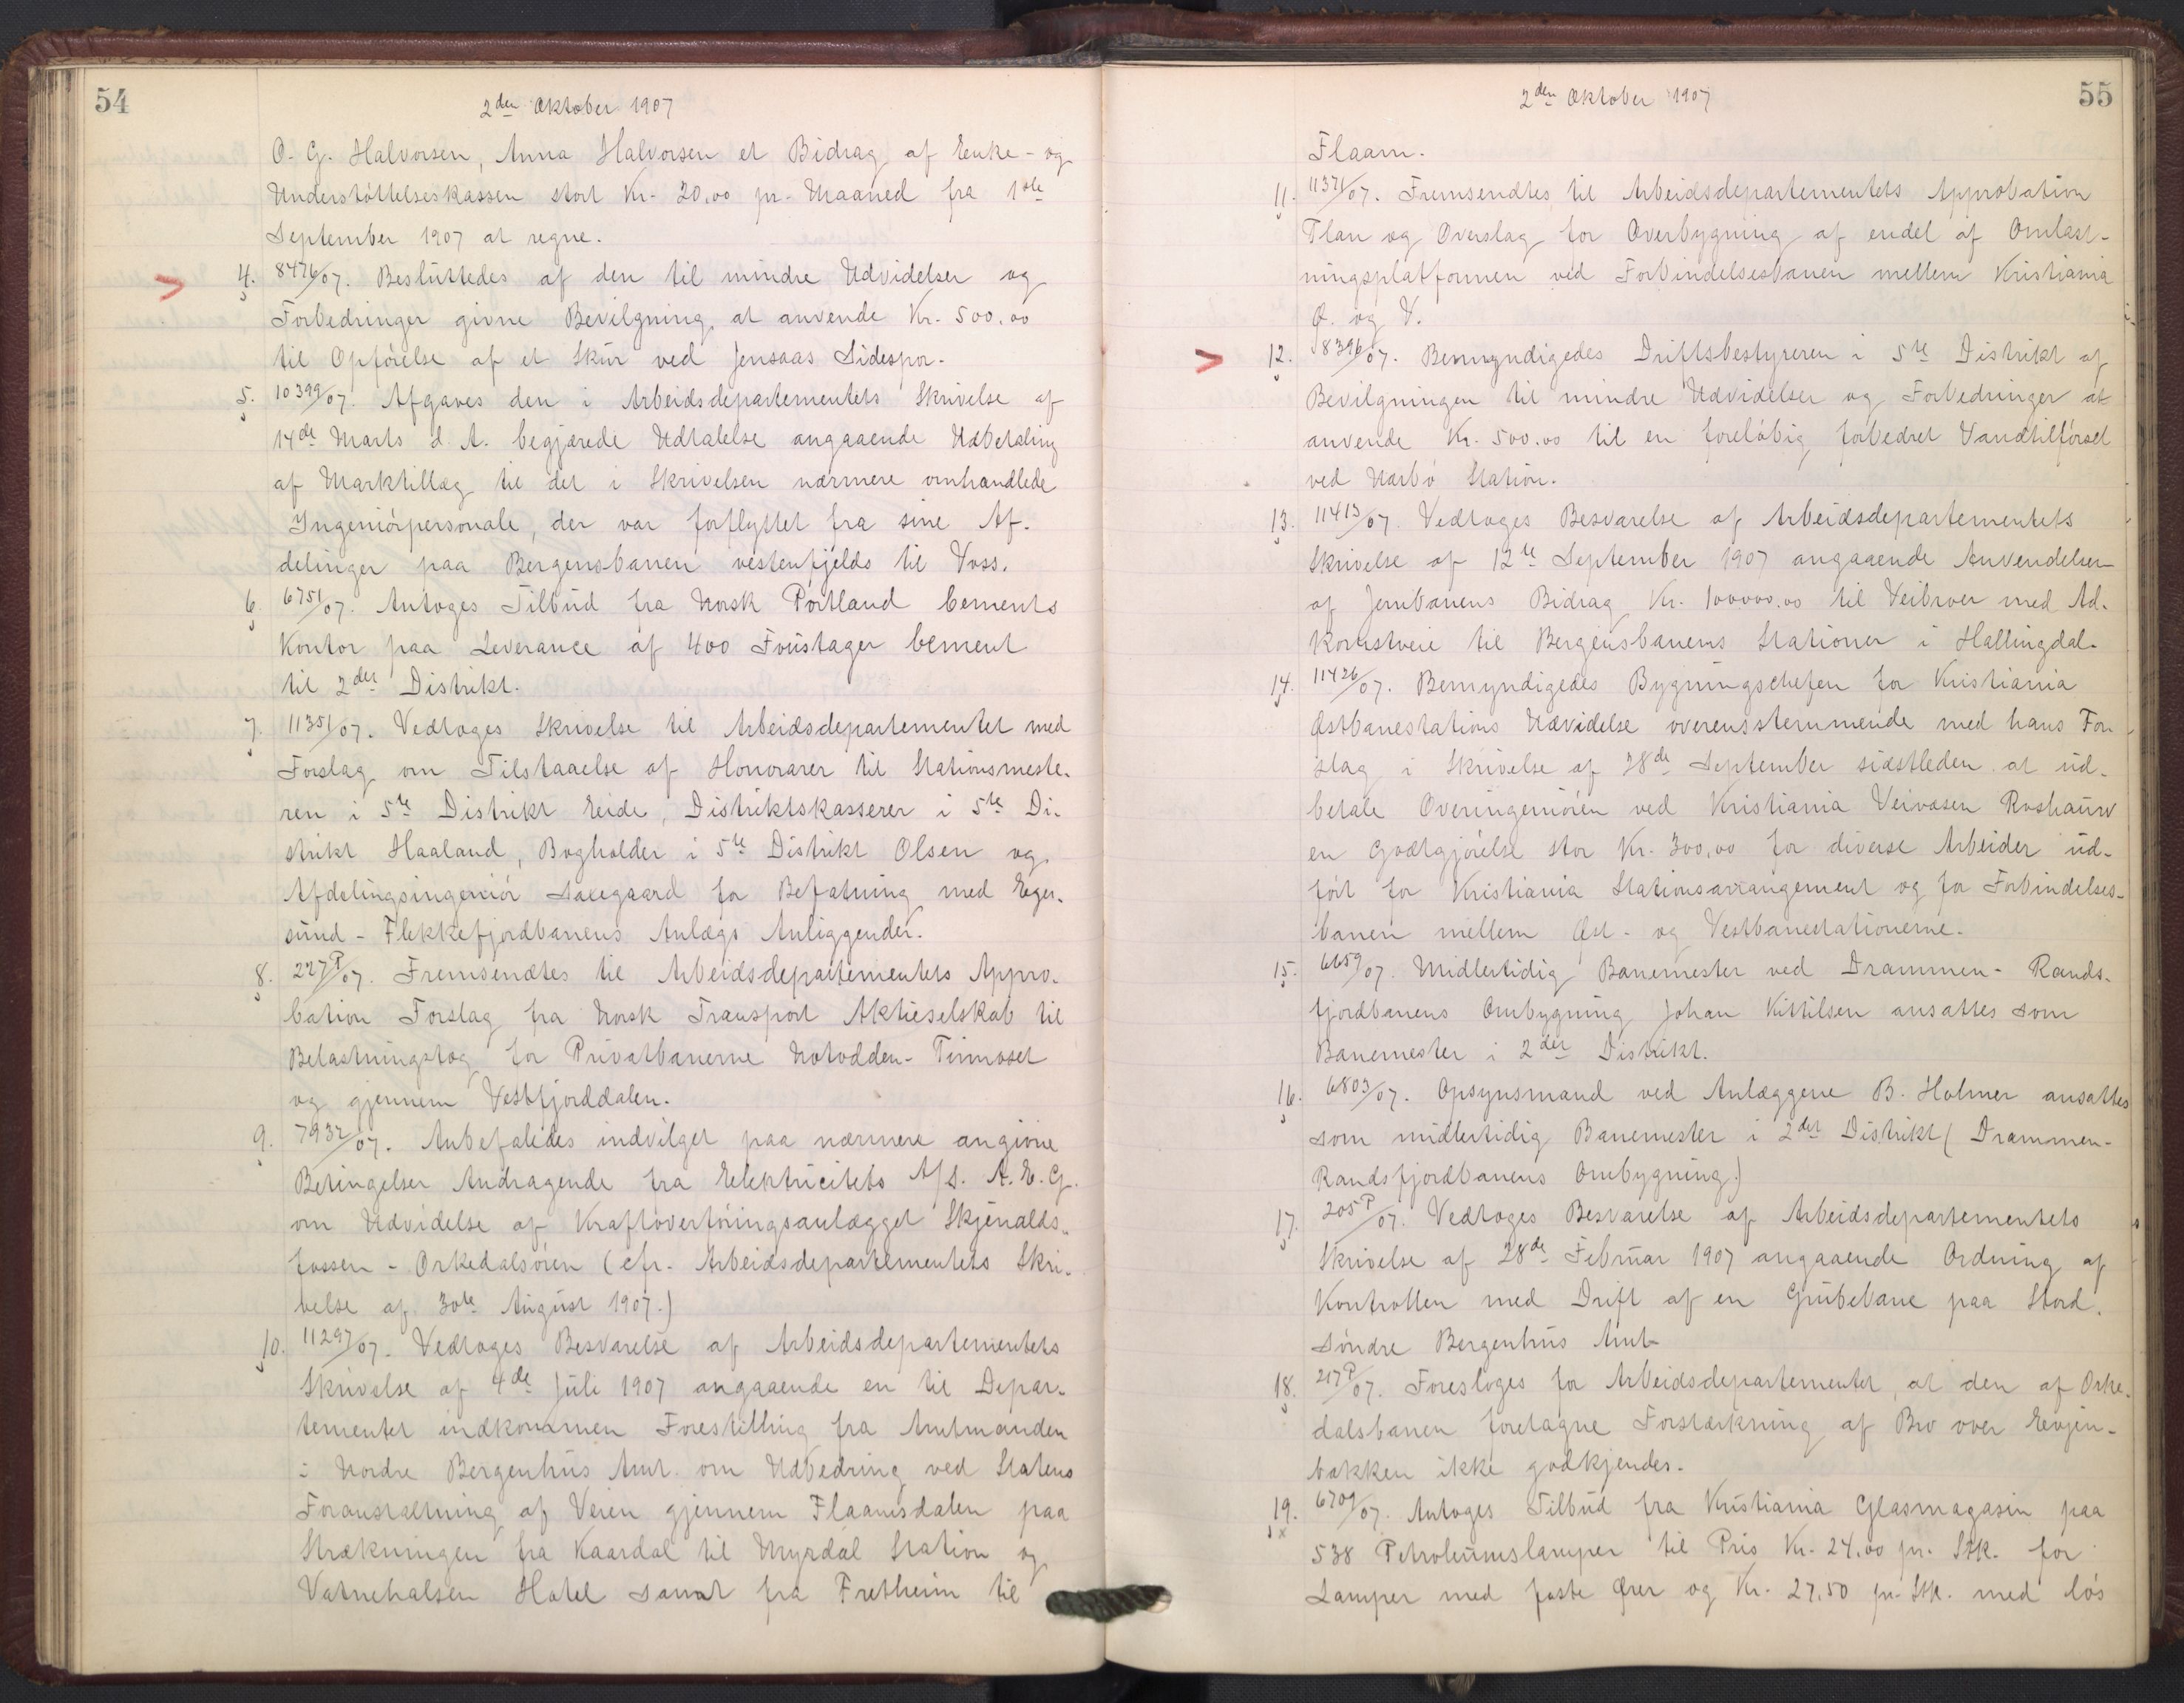 54
2den Oktober 1907
O. G. Halvorsen, Anna Halvorsen et Bidrag af Enke- og
Understøttelseskassen stort Kr. 20,00 pr. Maaned fra 1ste
September 1907 at regne.
4. 8476/07. Besluttedes af den til mindre Udvidelser og
Forbedringer givne Bevilgning, at anvende Kr. 500.00
til Opførelse af et Skur ved Jensaas Sidespor.
5. 10399/07. Afgaves den i Arbeidsdepartementets Skrivelse af
14de Marts d. A. begjærede Udtalelse angaaende Udbetaling
af Marktillæg til det i Skrivelsen nærmere omhandlede
Ingeniørpersonale, der var forflyttet fra sine Af-
delinger paa Bergensbanen vestenfjelds til Voss.
6. 6751/07. Antoges Tilbud fra Norsk Portland Cements
Kontor paa Leverance af 400 Foustager Cement
til 2det Distrikt.
7. 11351/07. Vedtoges Skrivelse til Arbeidsdepartementet med
Forslag om Tilstaaelse af Honorarer til Stationsmeste-
ren i 5te Distrikt Eeide, Distriktskasserer i 5te Di-
strikt Haaland, Bogholder i 5te Distrikt Olsen og
Afdelingsingeniør Saxegaard for Befatning med Eger-
sund - Flekkefjordbanens Anlægs Anliggender.
8. 227P/07. Fremsendtes til Arbeidsdepartementets Appro-
bation Forslag fra Norsk Transport Aktieselskab til
Belastningstog for Privatbanerne Notodden- Tinnoset
og gjennem Vestfjorddalen.
9. 7932/07. Anbefaledes indvilget paa nærmere angivne
Betingelser Andragende fra Elektricitets A/S. A. E. G.
om Udvidelse af Kraftoverføringsanlægget Skjenalds-
fossen - Orkedalsøren (cfr. Arbeidsdepartementets Skri-
velse af 30te August 1907.)
10. 11297/07. Vedtoges Besvarelse af Arbeidsdepartementets
Skrivelse af 4de Juli 1907 angaaende en til Depar-
tementet indkommen Forestilling fra Amtmanden
i Nordre Bergenhus Amt om Udbedring ved Statens
Foranstaltning af Veien gjennem Flaamsdalen paa
Strækningen fra Kaardal til Myrdal Station og
Vatnehalsen Hotel samt fra Fretheim til
55
2den Oktober 1907
Flaam.
11. 11371/07. Fremsendtes til Arbeidsdepartementets Approbation
Plan og Overslag for Overbygning af endel af Omlast-
ningsplatformen ved Forbindelsesbanen mellem Kristiania
Ø. og V.
12. 8396/07. Bemyndigedes Driftsbestyreren i 5te Distrikt af
Bevilgningen til mindre Udvidelser og Forbedringer at
anvende Kr. 500.00 til en foreløbig forbedret Vandtilførsel
ved Nærbø Station.
13. 11413/07. Vedtoges Besvarelse af Arbeidsdepartementets
Skrivelse af 12te September 1907 angaaende Anvendelsen
af Jernbanens Bidrag Kr. 100000.00 til Veibroer med Ad-
komstveie til Bergensbanens Stationer i Hallingdal.
14. 11426/07. Bemyndigedes Bygningschefen for Kristiania
Østbanestations Udvidelse overensstemmende med hans For-
slag i Skrivelse af 28de September sidstleden at ud-
betale Overingeniøren ved Kristiania Veivæsen Roshauw
en Godtgjørelse stor Kr. 300,00 for diverse Arbeider ud-
ført for Kristiania Stationsarrangement og for Forbindelses-
banen mellem Øst- og Vestbanestationerne.
15. 6659/07. Midlertidig Banemester ved Drammen- Rands-
fjordbanens Ombygning Johan Kittilsen ansattes som
Banemester i 2det Distrikt.
16. 6803/07. Opsynsmand ved Anlæggene B. Holmer ansattes
som midlertidig Banemester i 2det Distrikt (Drammen-
Randsfjordbanens Ombygning.)
17. 205P/07. Vedtoges Besvarelse af Arbeidsdepartementets
Skrivelse af 28de Februar 1907 angaaende Ordning af
Kontrollen med Drift af en Grubebane paa Stord.
Søndre Bergenhus Amt
18. 217P/07. Foresloges for Arbeidsdepartementet, at den af Orke-
dalsbanen foretagne Forstærkning af Bro over Evjen-
bækken ikke godkjendes.
19. 6709/07. Antoges Tilbud fra Kristiania Glasmagasin paa
538 Petroleumslamper til Pris Kr. 24.00 pr. Stk. for
Lamper med faste Ører og Kr. 27.50 pr. Stk. med løs